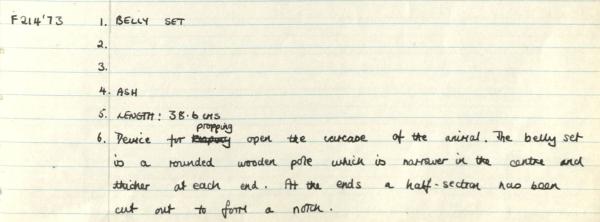 F214'73 1. BELLY SET
2.
3.
4. ASH
5. LENGTH: 38.6 cms
propping
6. Device for open the carcase of the animal. The belly set
is a rounded wooden pole which is narrower in the centre and
thicker at each end. At the ends a half-section has been
cut out to form a notch.